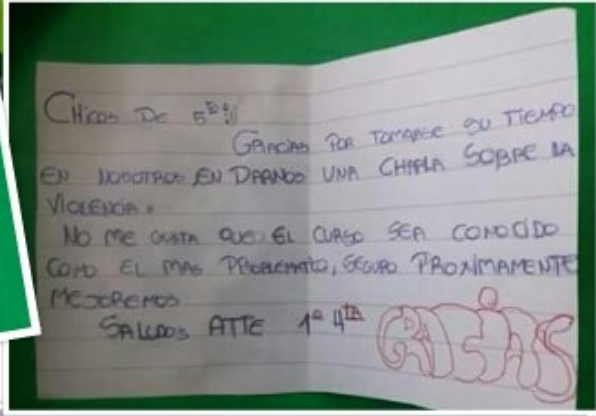 CHICOS DE 5to!!
GRACIAS POR TOMARSE SU TIEMPO
EN NOSOTROS, EN DARNOS UNA CHARLA SOBRE LA
VIOLENCIA.
NO ME GUSTA QUE EL CURSO SEA CONOCIDO
COMO EL MAS PROBLEMATO, SEGURO PROXIMAMENTE
MEJOREMOS
SALUDOS ATTE 1º 4TA
GRACIAS